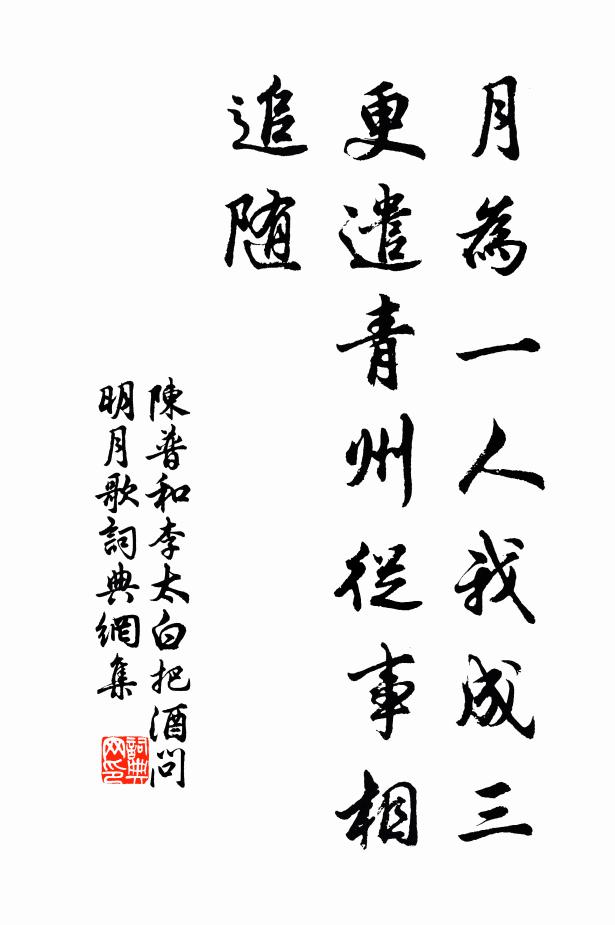 月為一人我成三
更遣青州從事相
追随
陳普和李太白把酒問
明月歌詞典網集
詞典
网印